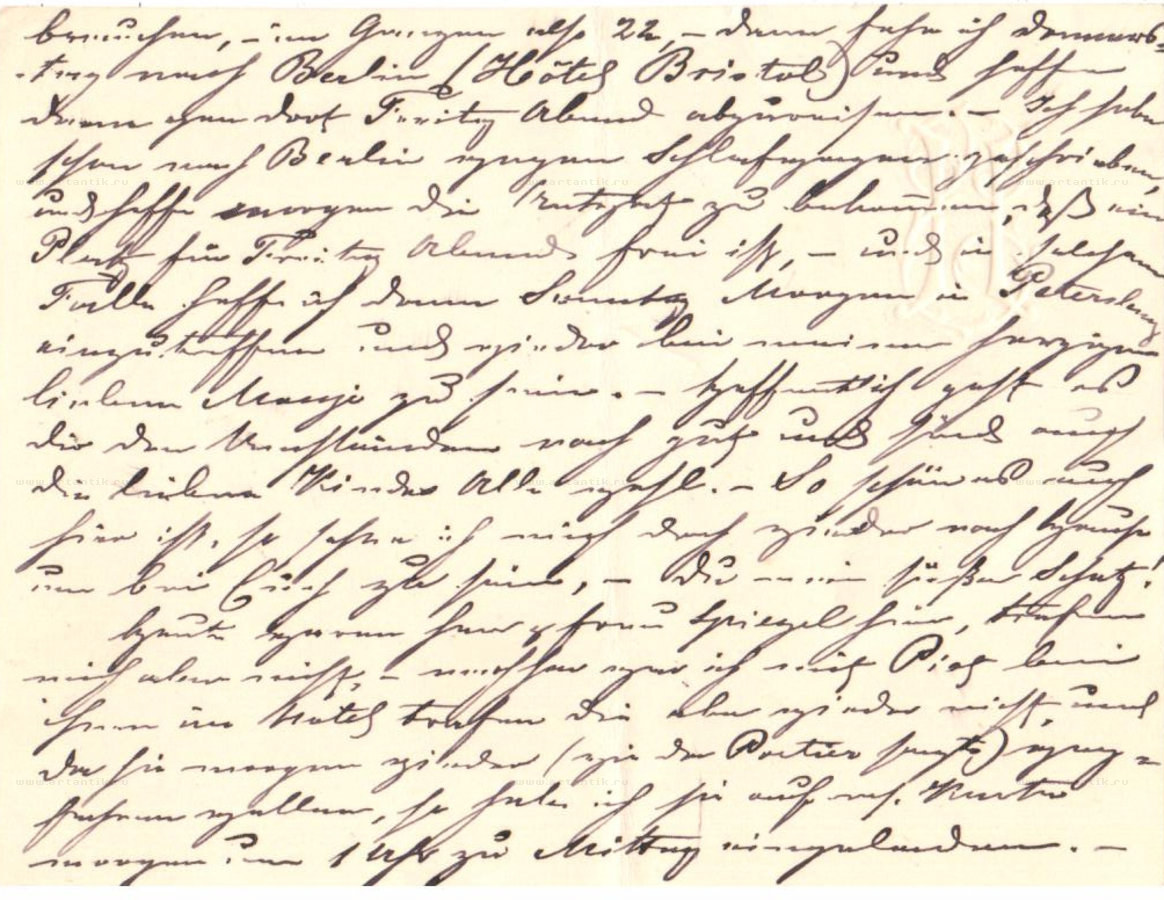 brauchen, – im Ganzen also 22, – dann fahre ich Donners-
tag nach Berlin (Hôtel Bristol) und hoffe
dann von dort Freitag Abend abzureisen. – Ich habe
schon nach Berlin wegen Schlafwagen geschrieben,
und hoffe morgen die Antwort zu bekommen, daß ein
Platz für Freitag Abend frei ist, – und in solchem
Falle hoffe ich dann Sonntag Morgen in Petersburg
einzutreffen und wieder bei meiner herzigen
lieben zu sein. – Hoffentlich geht es
dir den Umständen nach gut und sind auch
die lieben Kinder Alle wohl. – So schön es auch
hier ist, so sehne ich mich doch wieder nach Hause
um bei Euch zu sein, – du mein süßer Schatz!
Heute waren Herr & Frau Spiegel hier, trafen
mich aber nicht, – nachher war ich mit bei
ihnen im Hôtel trafen die aber wieder nicht, und
da sie morgen wieder (wie der Portier sagte) weg-
fahren wollen, so habe ich sie auf Karte
morgen um 1 Uhr zu Mittag eingeladen. –
www.artantik.ru